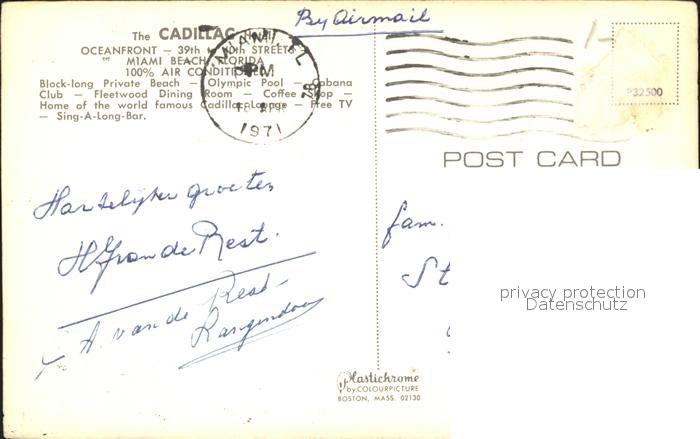 By Airmail
The CADILLAC Hotel
OCEANFRONT — 39th to 40th STREETS
MIAMI BEACH, FLORIDA
100% AIR CONDITIONED
Block-long Private Beach — Olympic Pool — Cabana
Club — Fleetwood Dining Room — Coffee Shop —
Home of the world famous Cadillac Lounge — Free TV
— Sing-A-Long-Bar.
MIAMI, FL
PM
1971
P32500
POST CARD
Hartelijke groeten
v. de Rest.
A. van de Rest-
fam.
St
privacy protection
Datenschutz
Plastichrome
by COLOURPICTURE
BOSTON, MASS. 02130